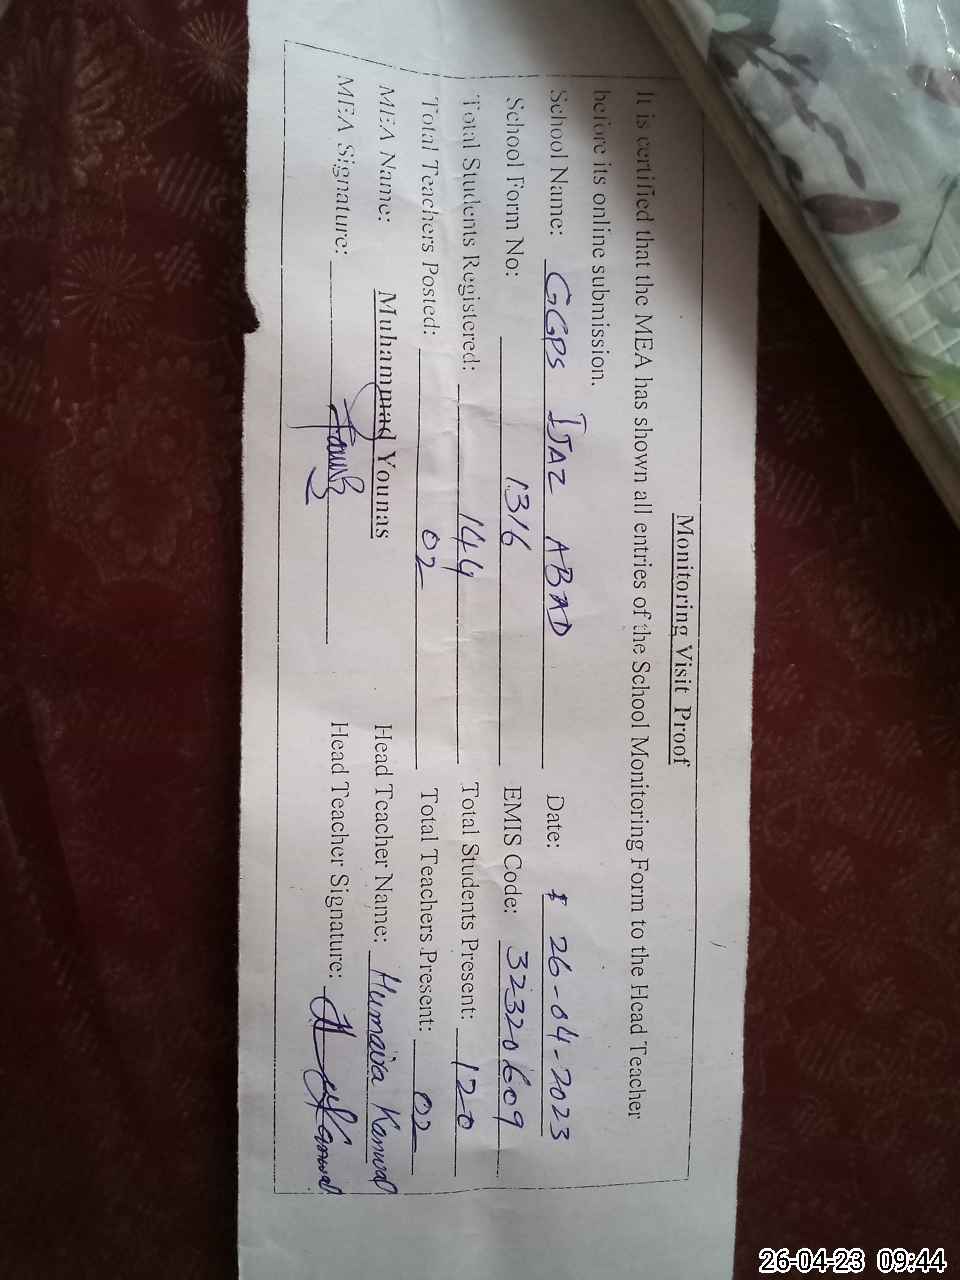 Monitoring Visit Proof
It is certified that the MEA has shown all entries of the School Monitoring Form to the Head Teacher
before its online submission.
School Name: GGPS IJAZ ABAD Date: 26-04-2023
School Form No: 1316 EMIS Code: 32320609
Total Students Registered: 144 Total Students Present: 120
Total Teachers Posted: 02 Total Teachers Present: 02
MEA Name: Muhammad Younas Head Teacher Name: Humaira Kanwal
MEA Signature: Head Teacher Signature:
26-04-23 09:44